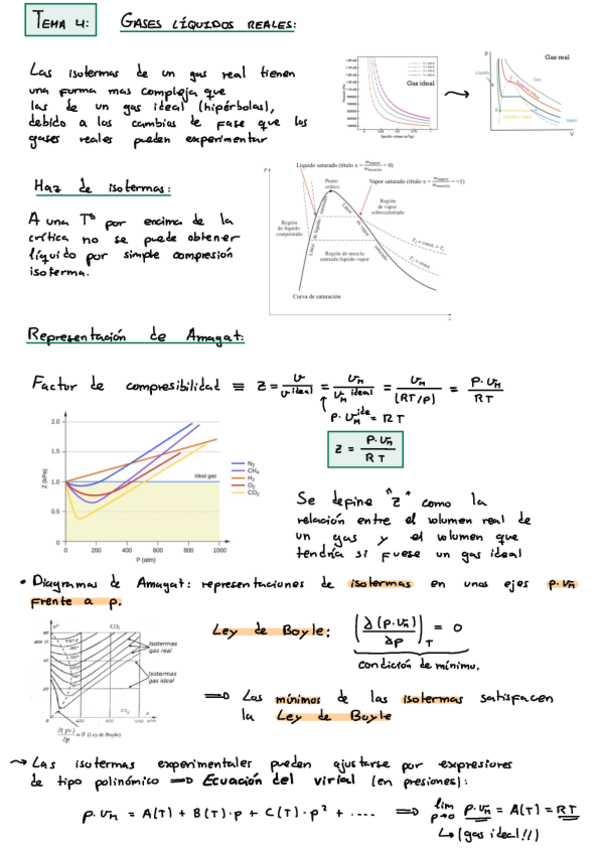 TEMA 4: GASES LÍQUIDOS REALES:
Las isotermas de un gas real tienen
una forma mas compleja que
las de un gas ideal (hipérbolas),
debido a los cambios de fase que los
gases reales pueden experimentar
Gas ideal
Gas real
P
Líquido
Gas
Líquido + vapor
Vapor
V
Haz de isotermas:
A una Tª por encima de la
crítica no se puede obtener
líquido por simple compresión
isoterma.
P
Líquido saturado (título x = = 0)
Punto crítico
Vapor saturado (título x = =1)
Región de líquido comprimido
Región de vapor sobrecalentado
Línea de líquido saturado
Línea de vapor saturado
Región de mezcla saturada líquido-vapor
T₂ = const. > T₁
T₁ = const.
Curva de saturación
V
Representación de Amagat:
Factor de compresibilidad ≡ Z = v/v ideal = v_M/v_M ideal = v_M/(RT/p) = p·v_M/RT
p·v_M^ide = RT
Z = p·v_M/RT
Z (kPa)
2.0
1.5
1.0
0.5
0
0 200 400 600 800 1000
P (atm)
Ideal gas
N₂
CH₄
H₂
O₂
CO₂
Se define "Z" como la
relación entre el volumen real de
un gas y el volumen que
tendría si fuese un gas ideal
• Diagramas de Amagat: representaciones de isotermas en unos ejes p.v_M
frente a p.
CO₂
Isotermas gas real
Isotermas gas ideal
CO₂
∂(pv)/∂p = 0 (Ley de Boyle)
Ley de Boyle: (∂(p·v_M)/∂p)_T = 0
condición de mínimo.
⟹ Los mínimos de las isotermas satisfacen
la Ley de Boyle
→ Las isotermas experimentales pueden ajustarse por expresiones
de tipo polinómico ⟹ Ecuación del virial (en presiones):
p·v_M = A(T) + B(T)·p + C(T)·p² + .... ⟹ lim p→0 p·v_M = A(T) = RT
↳ (gas ideal!!)